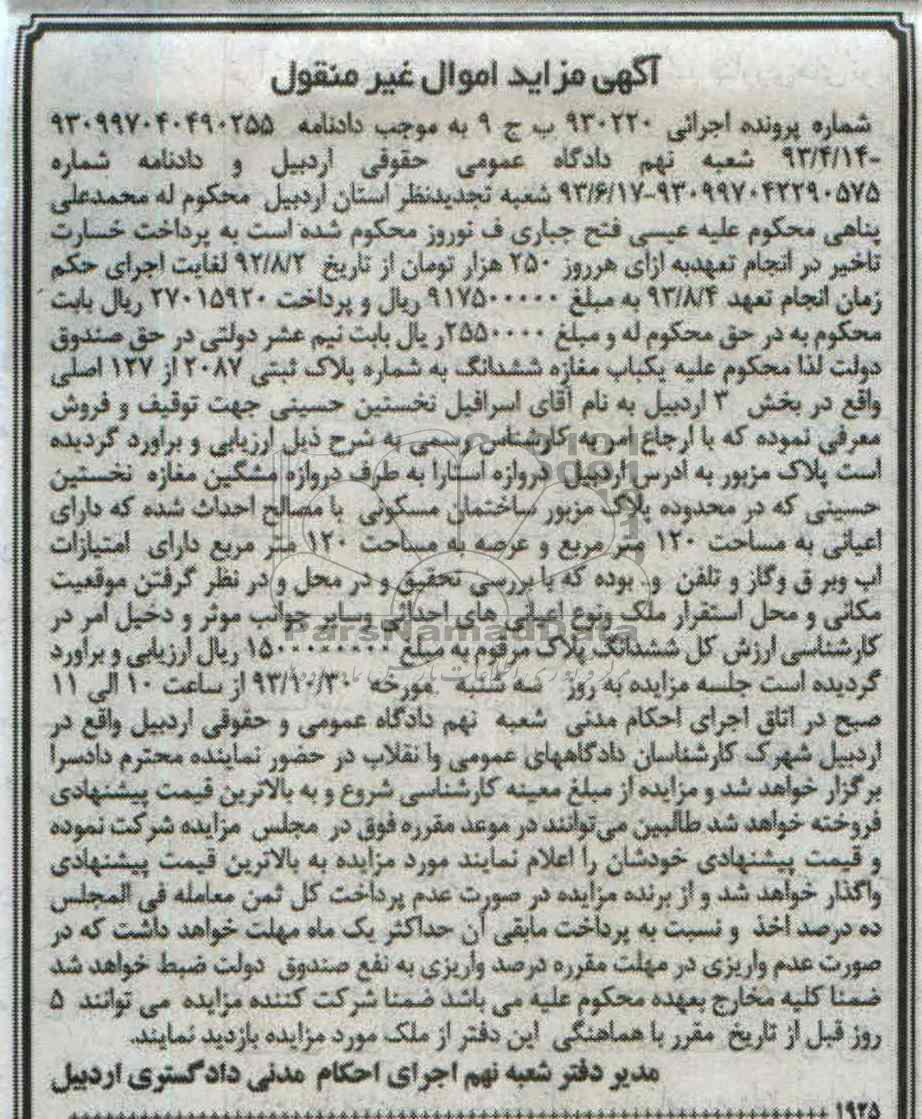 آگهی مزاید اموال غیر منقول
شماره پرونده اجرائی ۹۳۰۲۲۰ ب ج ۹ به موجب دادنامه ۹۳۰۹۹۷۰۴۰۴۹۰۲۵۵
-۹۳/۴/۱۴ شعبه نهم دادگاه عمومی حقوقی اردبیل و دادنامه شماره
۹۳۰۹۹۷۰۴۲۲۹۰۵۷۵-۹۳/۶/۱۷ شعبه تجدیدنظر استان اردبیل محکوم له محمدعلی
پناهی محکوم علیه عیسی فتح جباری ف نوروز محکوم شده است به پرداخت خسارت
تاخیر در انجام تعهدبه ازای هرروز ۲۵۰ هزار تومان از تاریخ ۹۲/۸/۲ لغایت اجرای حکم
زمان انجام تعهد ۹۳/۸/۴ به مبلغ ۹۱۷۵۰۰۰۰۰ ریال و پرداخت ۲۷۰۱۵۹۲۰ ریال بابت
محکوم به در حق محکوم له و مبلغ ۲۵۵۰۰۰۰ر یال بابت نیم عشر دولتی در حق صندوق
دولت لذا محکوم علیه یکباب مغازه ششدانگ به شماره پلاک ثبتی ۲۰۸۷ از ۱۲۷ اصلی
واقع در بخش ۳ اردبیل به نام آقای اسرافیل نخستین حسینی جهت توقیف و فروش
معرفی نموده که با ارجاع امر به کارشناس رسمی به شرح ذیل ارزیابی و براورد گردیده
است پلاک مزبور به ادرس اردبیل دروازه استارا به طرف دروازه مشگین مغازه نخستین
حسینی که در محدوده پلاک مزبور ساختمان مسکونی با مصالح احداث شده که دارای
اعیانی به مساحت ۱۲۰ متر مربع و عرصه به مساحت ۱۲۰ متر مربع دارای امتیازات
اب وبر ق وگاز و تلفن و.. بوده که با بررسی تحقیق و در محل و در نظر گرفتن موقعیت
مکانی و محل استقرار ملک ونوع اعیانی های احداثی وسایر جوانب موثر و دخیل امر در
ParsNamadData
کارشناسی ارزش کل ششدانگ پلاک مرقوم به مبلغ ریال ارزیابی و براورد
گردیده است جلسه مزایده به روز سه شنبه مورخه ۹۳/۱۰/۳۰ از ساعت ۱۰ الی ۱۱
صبح در اتاق اجرای احکام مدنی شعبه نهم دادگاه عمومی و حقوقی اردبیل واقع در
اردبیل شهرک کارشناسان دادگاههای عمومی وا نقلاب در حضور نماینده محترم دادسرا
برگزار خواهد شد و مزایده از مبلغ معینه کارشناسی شروع و به بالاترین قیمت پیشنهادی
فروخته خواهد شد طالبین می‌توانند در موعد مقرره فوق در مجلس مزایده شرکت نموده
و قیمت پیشنهادی خودشان را اعلام نمایند مورد مزایده به بالاترین قیمت پیشنهادی
واگذار خواهد شد و از برنده مزایده در صورت عدم پرداخت کل ثمن معامله فی المجلس
ده درصد اخذ و نسبت به پرداخت مابقی آن حداکثر یک ماه مهلت خواهد داشت که در
صورت عدم واریزی در مهلت مقرره درصد واریزی به نفع صندوق دولت ضبط خواهد شد
ضمنا کلیه مخارج بعهده محکوم علیه می باشد ضمنا شرکت کننده مزایده می توانند ۵
روز قبل از تاریخ مقرر با هماهنگی این دفتر از ملک مورد مزایده بازدید نمایند.
مدیر دفتر شعبه نهم اجرای احکام مدنی دادگستری اردبیل
۱۹۲۸